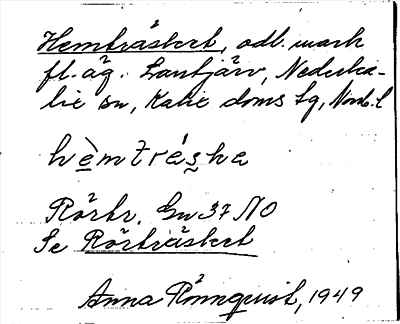 Hemträsket, odl. mark
fl. äg. Lantjärv, Nederka-
lix sn, Kalix doms lg, Norrb. l
hèmtréska
Rörtr. Gn 37 NO
Se Rörträsket
Anna Rönnquist, 1949